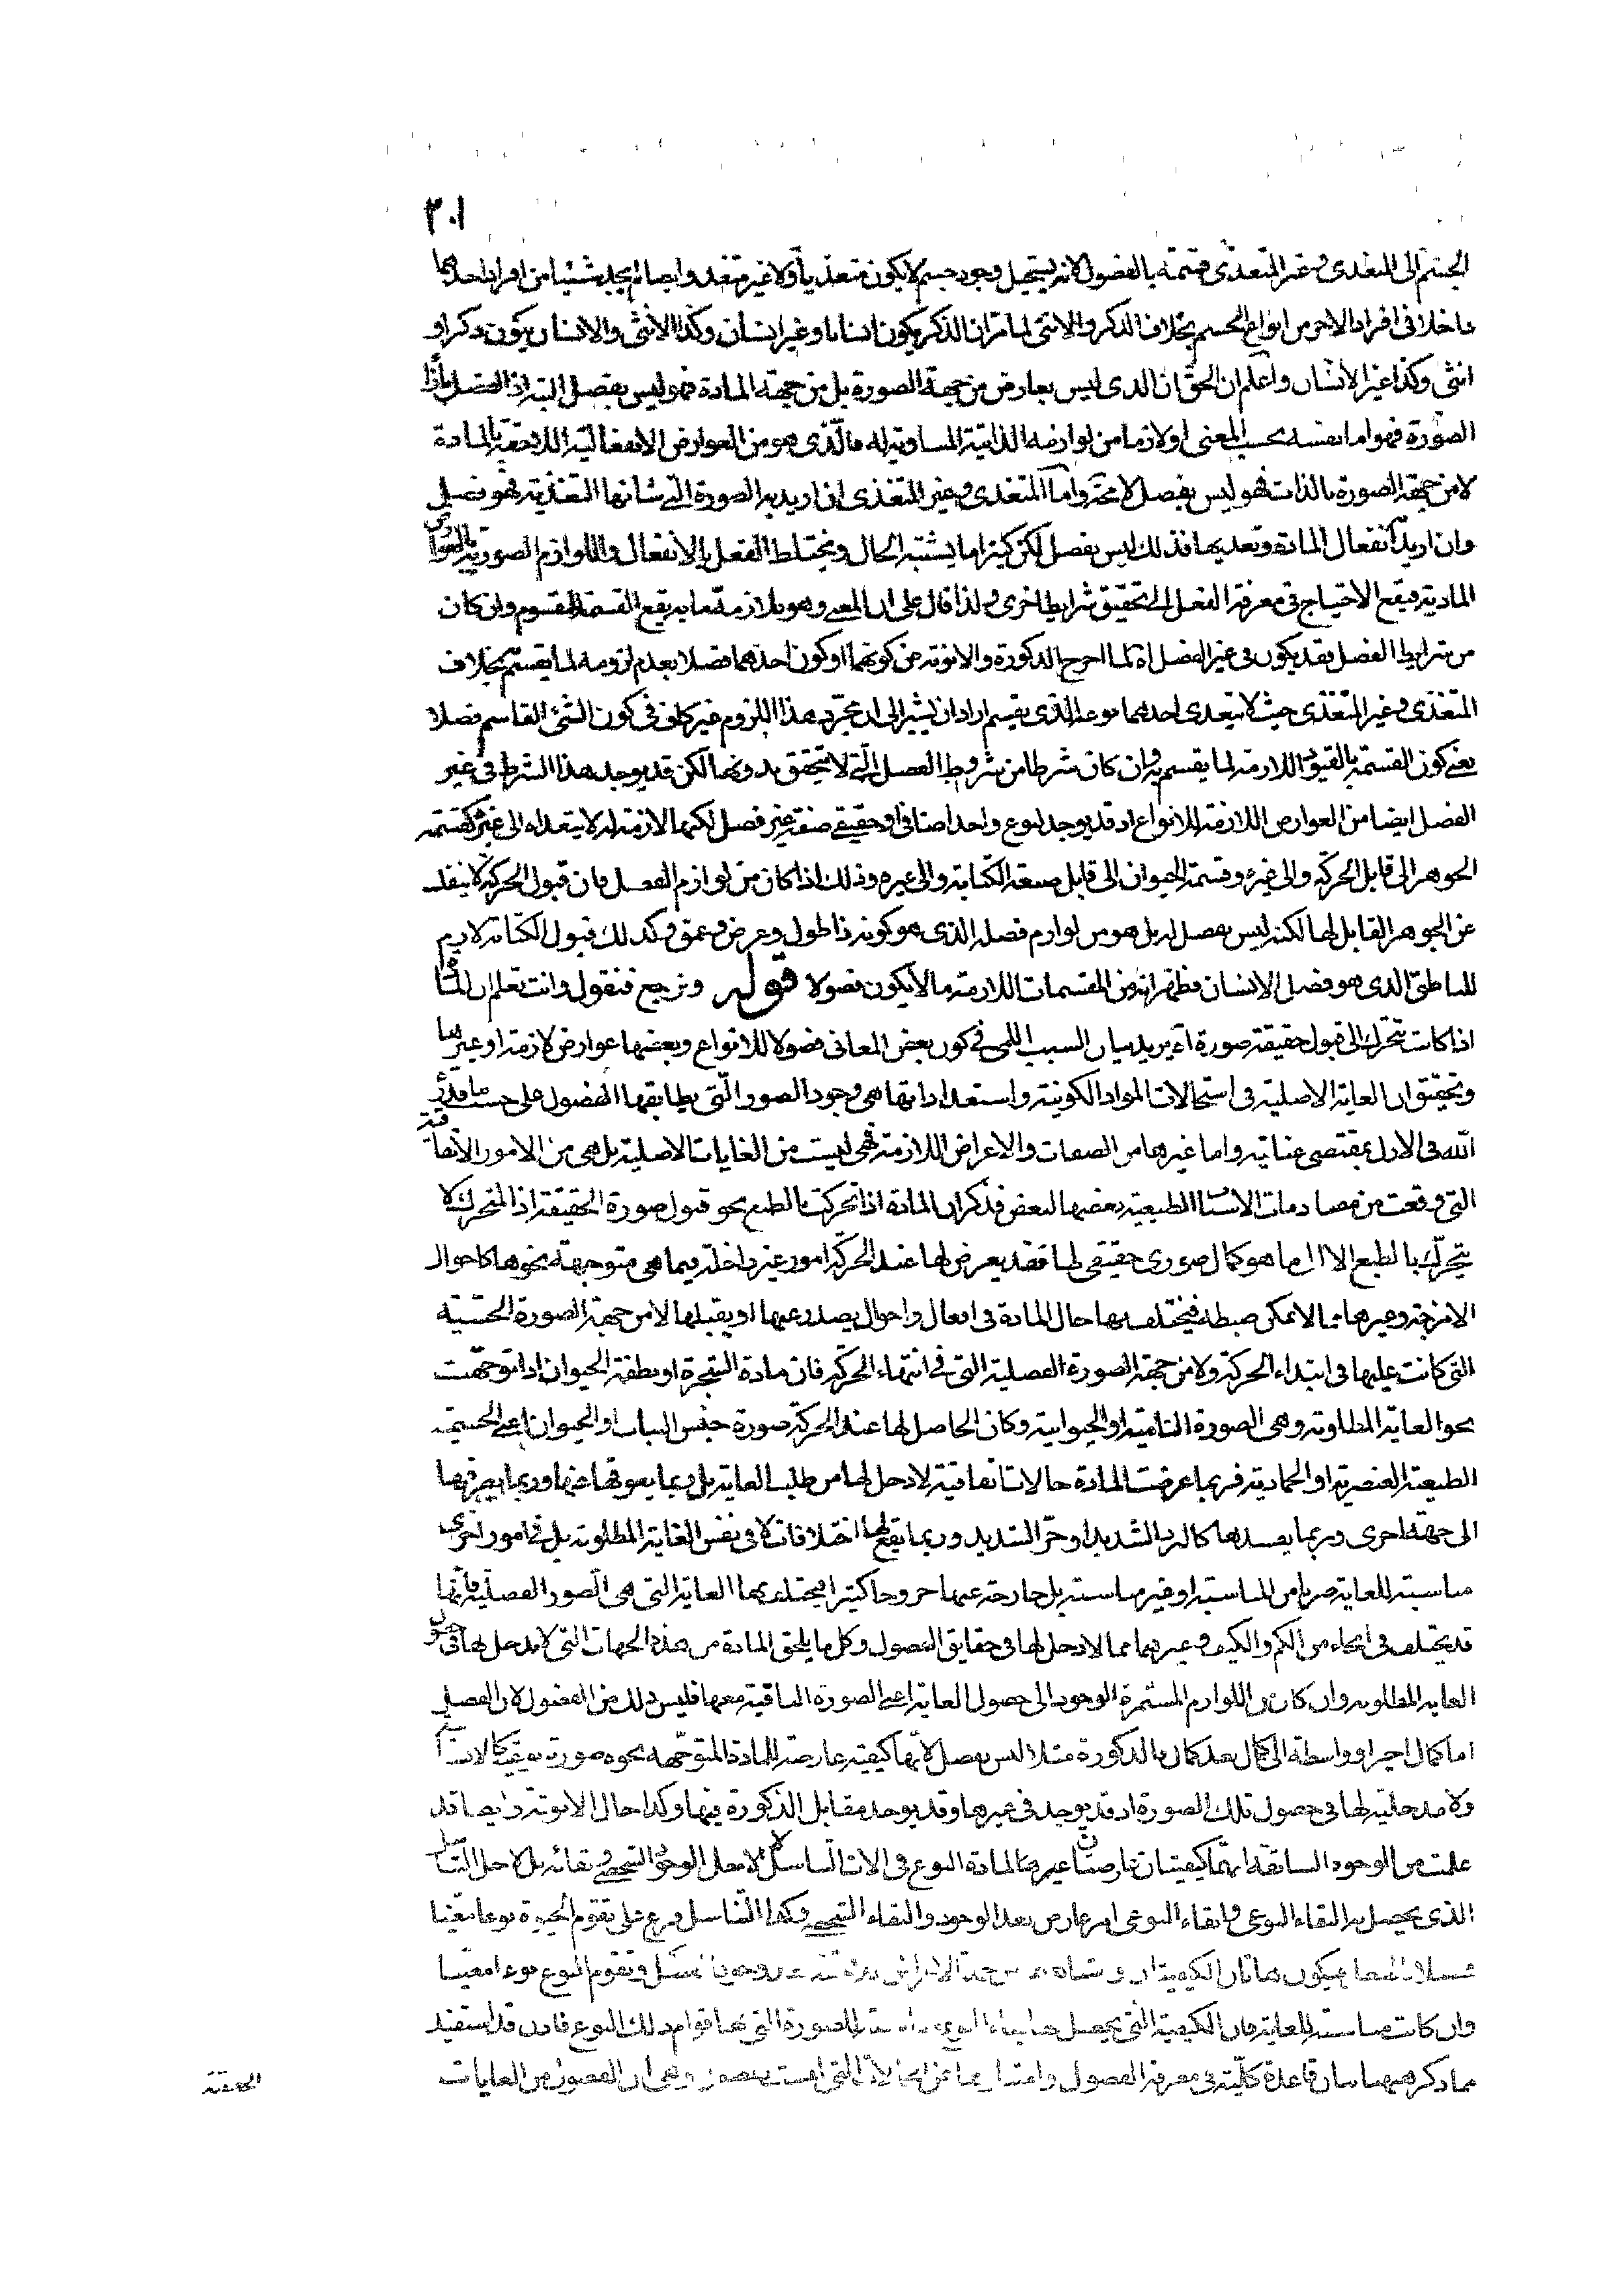 ٢٠١
الجسم الى المتغذى وغير المتغذى قسمة بالفصول لانه يستحيل وجود جسم لا يكون متغذيا ولا غير متغذ وايضا لم يجد شيئا من افراد احدهما
داخلا فى افراد الاخر من انواع الجسم بخلاف الذكر والانثى لما مر ان الذكر يكون انسانا وغير انسان وكذا الانثى والانسان يكون ذكرا و
انثى وكذا غير الانسان واعلم ان الحق ان الذى ليس بعارض من جهة الصورة بل من جهة المادة فهو ليس بفصل البتة اذ الفصل بأزاء
الصورة فهو اما نفسه بحسب المعنى او لازما من لوازمه الذاتية المساوية له فالذى هو من العوارض الانفعالية اللاحقة بالمادة
لا من جهة الصورة بالذات فهو ليس بفصل لا محة واما المتغذى وغير المتغذى ان اريد به الصورة التى شانها التغذية فهو فصل
وان اريد انفعال المادة وتغديها فذلك ليس بفصل لكن كثيرا ما يشتبه الحال ويختلط الفعل بالانفعال واللوازم الصورية بالعوارض
المادية فيقع الاحتياج فى معرفة الفصل الى تحقيق شرايط اخرى ولذا قال على ان المعنى وهو ملازمة ما به يقع القسمة للمقسوم وان كان
من شرايط الفصل فقد يكون فى غير الفصل اه لما اخرج الذكورة والانوثة من كونهما او كون احدهما فصلا بعدم لزومه لما يقسم بخلاف
المتغذى وغير المتغذى حيث لا يتعدى احدهما نوعه الذى يقسم اراد ان يشير الى ان مجرد هذا اللزوم غير كاف فى كون الشئ القاسم فصلا
يعنى كون القسمة بالقيود اللازمة لما يقسم به وان كان شرطا من شروط الفصل التى لا يتحقق بدونها لكن قد يوجد هذا الشرط فى غير
الفصل ايضا من العوارض اللازمة للانواع اذ قد يوجد لنوع واحد اضافى او حقيقى صفة غير فصل لكنها لازمة له لا يتعداه الى غيره كقسمة
الجوهر الى قابل الحركة والى غيره وقسمة الحيوان الى قابل صنعة الكتابة والى غيره وذلك اذا كان من لوازم الفصل فان قبول الحركة لا ينفك
عن الجوهر القابل لها لكنه ليس بفصل له بل هو من لوازم فصله الذى هو كونه ذا طول وعرض وعمق وكذلك قبول الكتابة لازم
للناطق الذى هو فصل الانسان فظهر انه من المقسمات اللازمة ما لا يكون فصولا قوله ونرجع فنقول وانت تعلم ان المادة
اذا كانت تتحرك الى قبول حقيقة صورة اه يريد بيان السبب اللمى فى كون بعض المعانى فصولا للانواع وبعضها عوارض لازمة او غيرها
وتحقيق ان الغاية الاصلية فى استحالات المواد الكونية واستعداداتها هى وجود الصور التى يطابقها الفصول على حسب ما قدر
الله فى الازل بمقتضى عنايته واما غيرها من الصفات والاعراض اللازمة فهى ليست من الغايات الاصلية بل هى من الامور الاتفاقية
التى وقعت من مصادمات الاشياء الطبيعية بعضها لبعض فذكر ان المادة اذا تحركت بالطبع نحو قبول صورة الحقيقة اذ المتحرك لا
يتحرك بالطبع الا الى ما هو كمال صورى حقيقى لها فقد يعرض لها عند الحركة امور غير داخلة فيما هى متوجهة نحوها كاحوال
الامزجة وغيرها مما لا يمكن ضبطه فيختلف بها حال المادة فى افعال واحوال يصدر عنها او يقبلها لا من جهة الصورة الجنسية
التى كانت عليها فى ابتداء الحركة ولا من جهة الصورة الفصلية التى فى انتهاء الحركة فان مادة الشجرة او نطفة الحيوان اذا توجهت
نحو الغاية المطلوبة وهى الصورة النامية او الحيوانية وكان الحاصل لها عند الحركة صورة جنس النبات او الحيوان اعنى الجسمية
الطبيعة العنصرية او الجمادية فربما عرضت للمادة حالات اتفاقية لا دخل لها من طلب الغاية بل ربما يعوقها عنها وربما يصرفها
الى جهة اخرى وربما يفسدها كالبرد الشديد او حر الشديد وربما يقع لها اختلافات لا فى نفس الغاية المطلوبة بل فى امور اخرى
مناسبة للغاية ضربا من المناسبة او غير مناسبة بل خارجة عنها خروجا كثيرا فيختلف بها الغاية التى هى الصور الفصلية فانها
قد يختلف فى انحاء من الكم والكيف وغيرهما مما لا دخل لها فى حقايق الفصول وكل ما يلحق المادة من هذه الجهات التى لا مدخل لها فى حصول
الغاية المطلوبة وان كان من اللوازم المستمرة الوجود الى حصول الغاية اعنى الصورة الباقية معها فليس ذلك من الفصول لان الفصل
اما كمال اخير او واسطة الى كمال بعد كمال فالذكورة مثلا ليس بفصل لانها كيفية عارضة للمادة المتوجهه نحوه صورة نوعية كالانسان
ولا مدخلية لها فى حصول تلك الصورة اذ قد يوجد فى غيرها وقد يوجد مقابل الذكورة فيها وكذا حال الانوثة وايضا قد
علمت من الوجوه السابقة انهما كيفيتان عارضتان غيرها لمادة النوع فى الات التناسل لا لاجل الوجود الشخصى وبقائه بل لاجل التناسل
الذى يحصل به البقاء النوعى والبقاء النوعى امر عارض بعد الوجود والبقاء الشخصى وكذا التناسل فرع على تقوم الحيوة نوعا معينا
فيكون هاتان الكيفيتان وتقوم النوع نوعا معينا
وان كانت مناسبة للغاية فان الكيفية التى يحصل للصورة التى بها قوام ذلك النوع فاذن قد استفيد
مما ذكر ههنا بيان قاعدة كلية فى معرفة الفصول وامتيازها عن التى ليست بفصول وهى ان الفصول من الغايات
الحقيقة